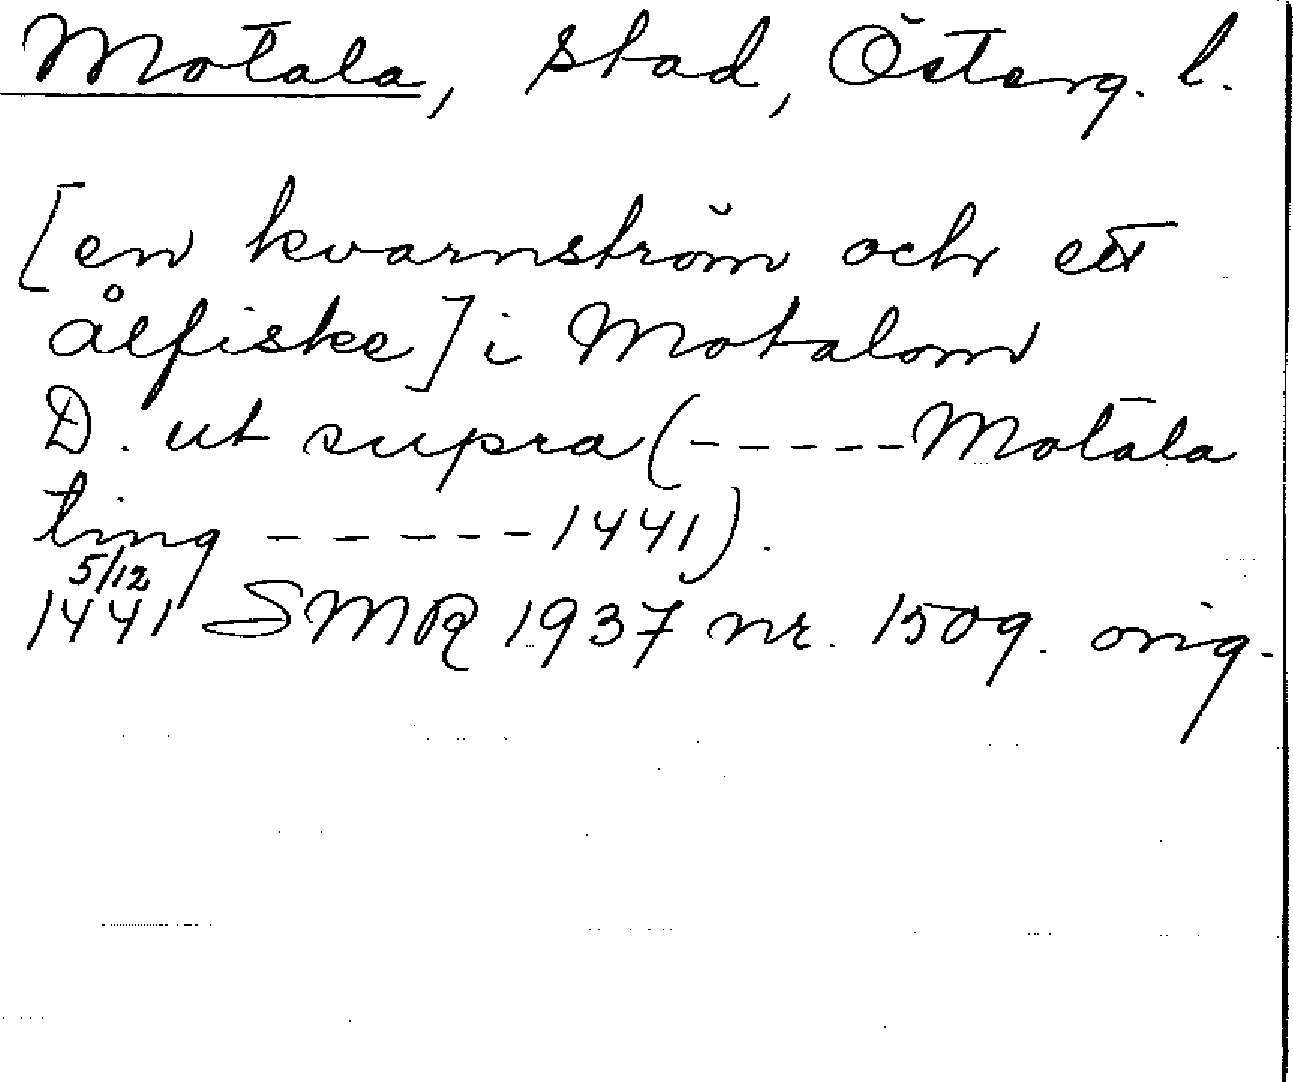 Motala, stad, Österg. l.
[en kvarnström och ett
ålfiske] i Motalom
D. ut supra (-----Motala
ting -----1441).
5/12
1441 SMR 1937 nr. 1509. orig.